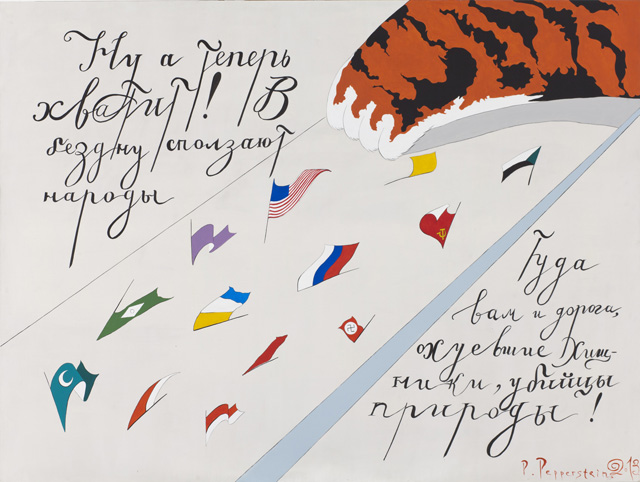 Ну а теперь
хватит! В
бездну сползают
народы
Туда
вам и дорога,
охуевшие хищ-
ники, убийцы
природы!
P. Pepperstein 2018